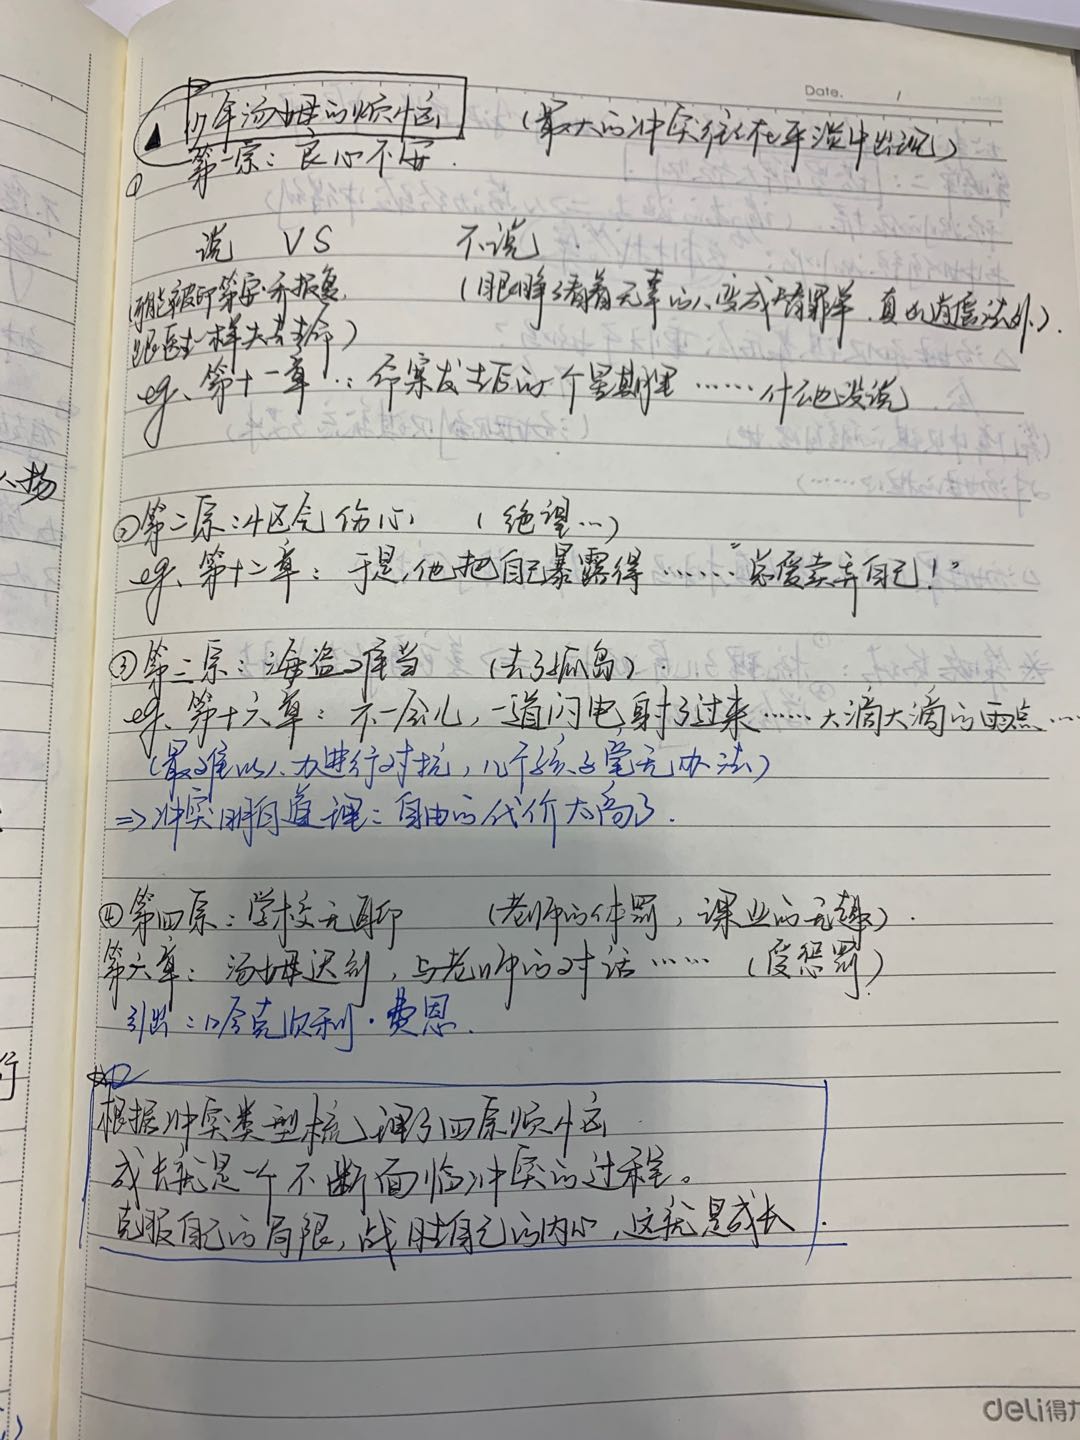 Date. 1
少年汤姆的烦恼 (最大的冲突往往在平淡中出现)
① 第一宗：良心不安.
说 VS 不说
(可能被印第安·乔报复, (眼睁睁看着无辜的人变成替罪羊.真凶逍遥法外).
跟医生一样失去生命)
eg、第十一章：命案发生后的一个星期里……什么也没说
②第二宗：小区气伤心 (绝望…)
eg、第十二章：于是,他把自己暴露得……"总爱卖弄自己！"
③第三宗：海盗难当 (去了孤岛).
eg、第十六章：不一会儿,一道闪电射了过来……大滴大滴的雨点…
(最难以人力进行对抗,几个孩子毫无办法)
⇒冲突明白道理：自由的代价太高了.
④第四宗：学校无聊 (老师的体罚,课业的无趣).
第六章：汤姆迟到,与老师的对话…… (受惩罚)
引出：哈克贝利·费恩.
根据冲突类型梳理了四宗烦恼
成长就是一个不断面临冲突的过程。
克服自己的局限,战胜自己的内心,这就是成长.
deli得力